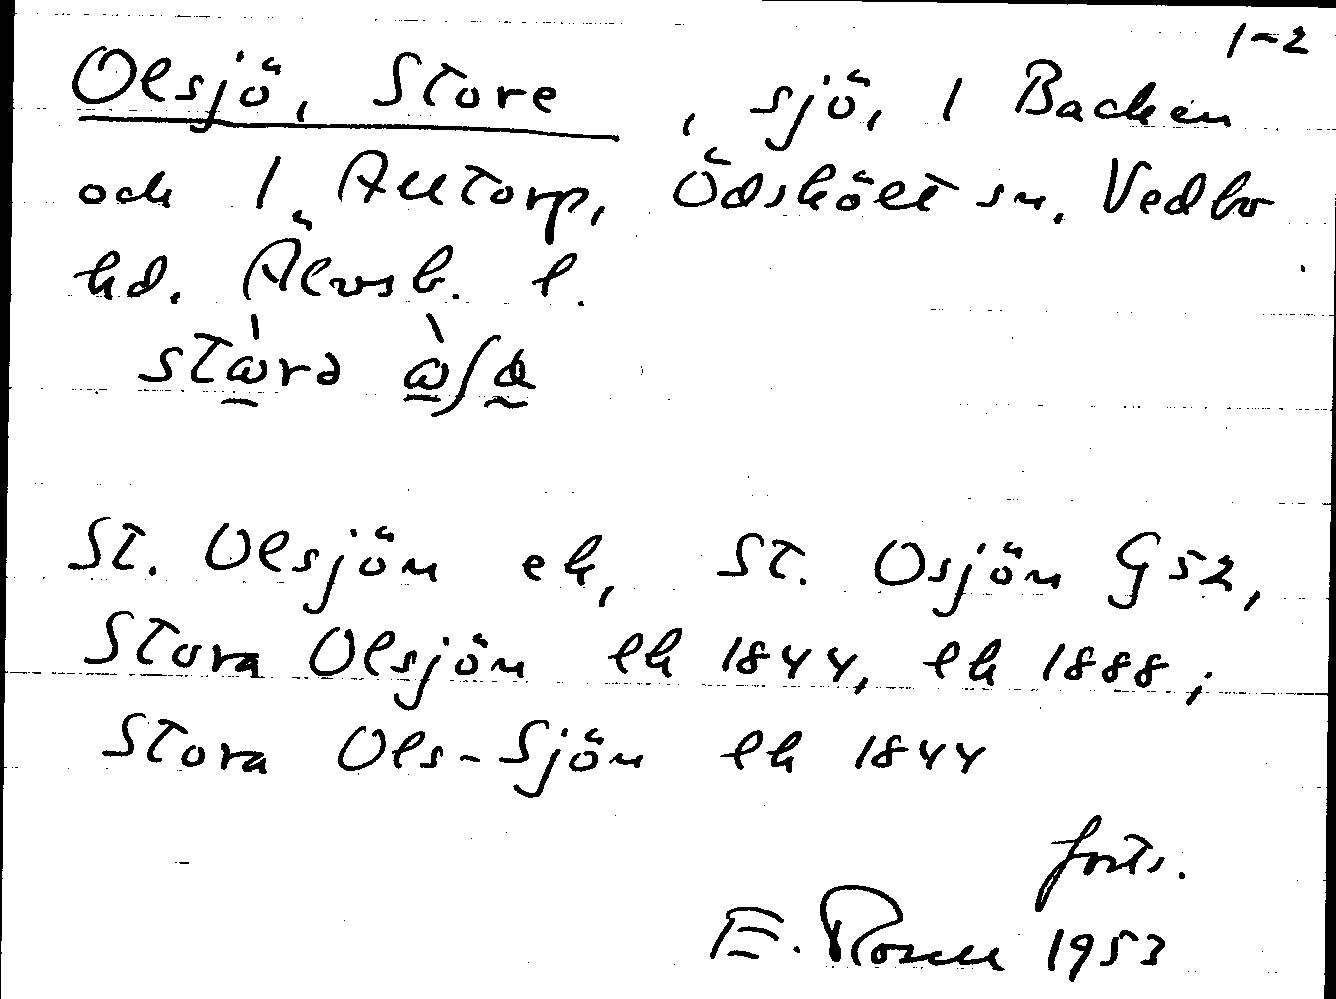 1-2
Olsjö, Store, sjö, 1 Backen
och 1 Alltorp, Ödskölt sn. Vedbo
hd. Älvsb. l.
St. Olsjön ek, St. Osjön G52,
Stora Olsjön lk 1844, lk 1888,
Stora Ols-Sjön lk 1844
forts.
E. Rosell 1953